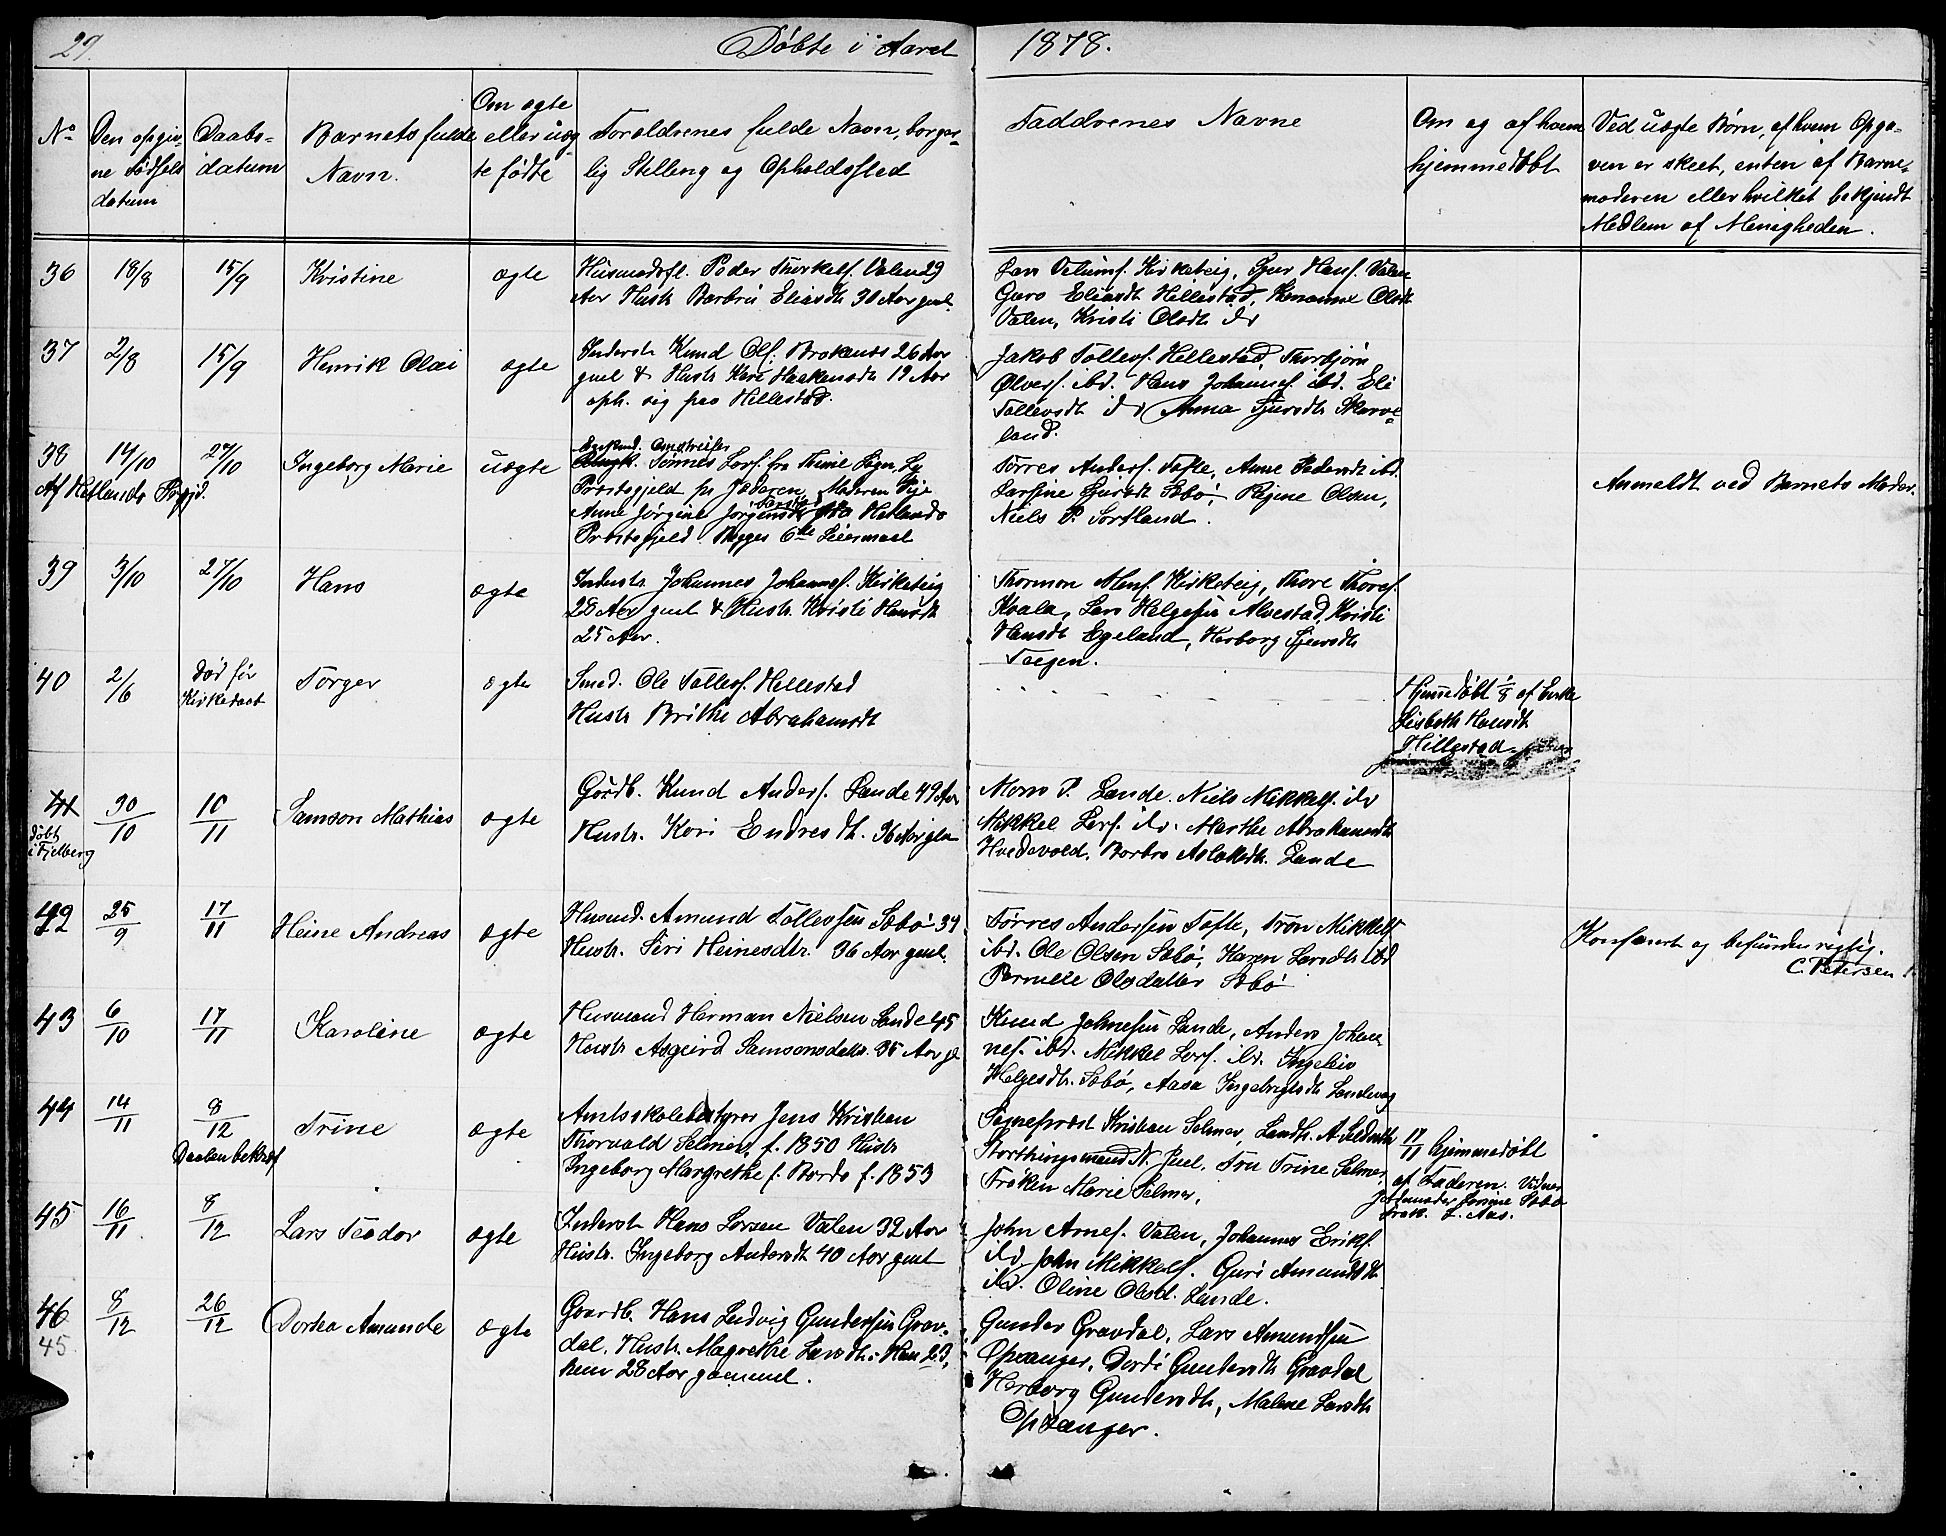 29.
Døbte i Aaret 1878.
No
Den opgiv-
ne Fødsels
datum
Daabs-
datum
Barnets fulde
Navn.
Om ægte
eller uæg-
te fødte
Forældrenes fulde Navn, borger-
lig Stilling og Opholdssted
Faddrenes Navne
Om og af hvem
hjemmedøbt
Ved uægte Børn, af hvem Opga-
ven er skeet, enten af Barne-
moderen eller hvilket bekjendt
Medlem af Menigheden.
36 18/8 15/9 Kristine ægte
Peder Thorkels. Valen 29
Aar Hustr Barbru Eliasdtr 30 Aar gml.
Kirketeig, Sjur Hans. Valen
Guro Eliasdt Hillestad, Olsdt
Valen, Kristi Olsdt ibd
37 2/8 15/9 Henrik Olai ægte
Inderst Knud Ols. 26 Aar
gml & Hustr Kari Haakensdtr 19 Aar
oph. sig paa Hillestad.
Jakob Tollefs. Hellestad, Thorbjørn
Ølvers. ibd. Hans Johannes. ibd. Eli
Tollevsdt ibd Anna Sjursdtr Skarve-
land.
38 14/10 27/10 Ingeborg Marie uægte
Af Hetlands Prgjd.
Omstreifer
Tønnes Lars. fra Thime Sogn, Ly
Præstegjeld pr Jæderen, Moderen Pige
Anne Jørgine Jørgensdtr fra Hetlands
Præstegjeld. Begges 6te Leiermaal
Torres Anders. Tofte, Anne Pedersdt ibd.
Larsine Sjursdt Sæbø, Regine Olsen,
Niels P. Sortland.
Anmeldt ved Barnets Moder.
39 3/10 27/10 Hans ægte
Inderstr Johannes Johannes. Kirketeig
28 Aar gml & Hustr Kristi Hansdtr
25 Aar.
Thormon Kirketeig, Thore Thores.
Kvala, Lars Helgesen Alvestad, Kristi
Hansdt Egeland, Herborg Sjursdtr
Teigen.
40 2/6 Død før
Kirkedaab
Torger ægte
Smed. Ole Tollefs. Hellestad
Hustr Brithe Abrahamsdt
Hjemmedøbt 1/8 af Enke
Lisbeth Hansdt
Hillestad
41 30/10 10/11 Samson Mathias ægte
døbt
i Fjelberg
Gårdb. Knud Anders. Sande 49 Aar
Hustr. Kari Endresdt. 36 Aar glm
Mons P. Sande. Niels Mikkels. ibd
Mikkel Lars. ibd. Marthe Abrahamsdtr
Hvedevold, Barbro Aslaksdtr. Sande
42 25/9 17/11 Heine Andreas ægte
Husmd. Amund Tollefsen Sæbø 34
Hustr. Siri Heinesdtr. 36 Aar gml.
Tørres Andersen Tofte, Tron Mikkels
ibd. Ole Olsen Sæbø, Karen Larsdtr ibd
Pernille Olsdatter Sæbø
Konfereret og befunden rigtig.
C. Petersen
43 6/10 17/11 Karoline ægte
Husmand Herman Nielsen Sande 45
Hustr Asgerd Samsonsdatr. 35 Aar gl
Knud Johnesen Sande, Anders Johan-
nes. ibd. Mikkel Lars. ibd. Ingeleiv
Helgesdtr. Sæbø, Aasa Ingebrigtsdtr Sandvog
44 14/11 8/12 Trine ægte
Daaben bekræf
Amtsskolebestyrer Jens Kristian
Thorvald Selmer, f. 1850 Hustr
Ingeborg Margrethe f. Borda f. 1853
Sognepræst Kristian Selmer, Landh. A. Selmer
Storthingsmand N. Juel, Fru Trine Selmer,
Frøken Marie Selmer,
17/11 hjemmedøbt
af Faderen. Vidner
Jordmoder Larsine Sæbø
Frøk. L. Aas.
45 16/11 8/12 Lars Teodor ægte
Inderstr Hans Larsen Valen 39 Aar
Hustr. Ingeborg Andersdt 40 Aar gml
John Arnes. Valen, Johannes Eriks.
ibd John Mikkels. Guri Amundsdtr
ibd. Oline Olsd. Sande.
46 8/12 26/12 Dortea Amunde ægte
45.
Gaardb. Hans Ludvig Gundersen Grav-
dal, Hustr. Magrethe Larsdtr. Han 23,
hun 28 Aar gammel.
Gunder Gravdal, Lars Amundsen
Opsanger, Dordi Gundersdtr Gravdal
Herborg Gundersdtr, Malene Larsdtr
Opsanger.